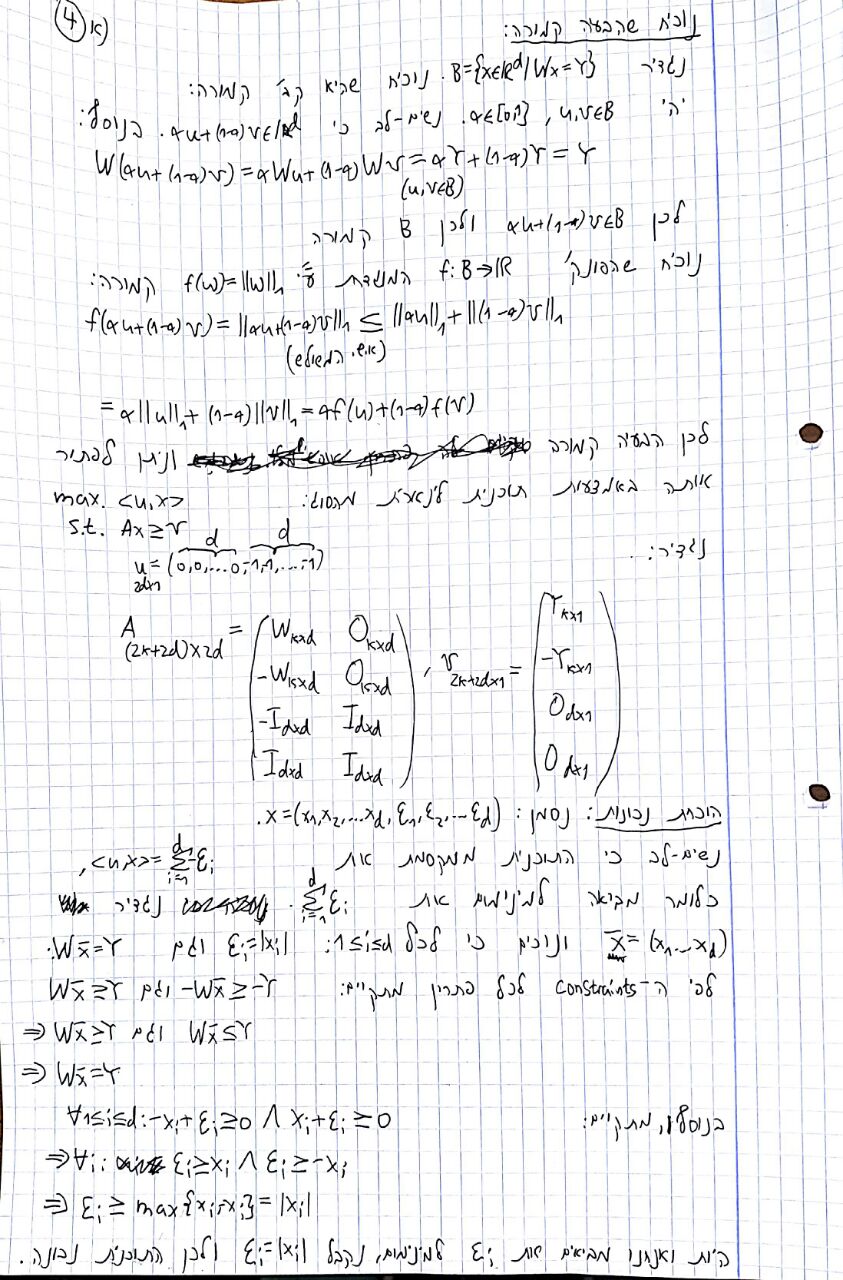 4) א)
נוכיח שהבעיה קמורה:
נגדיר B={x∈ℝ^d | Wx=Y}. נוכיח שהיא קב' קמורה:
יהי u,v∈B, α∈[0,1]. נשים-לב כי αu+(1-α)v∈ℝ^d. בנוסף:
W(αu+(1-α)v)=αWu+(1-α)Wv=αY+(1-α)Y=Y
(u,v∈B)
לכן αu+(1-α)v∈B ולכן B קמורה
נוכיח שהפונק' f:B→ℝ המוגדרת ע"י f(w)=||w||₁ קמורה:
f(αu+(1-α)v)=||αu+(1-α)v||₁ ≤ ||αu||₁+||(1-α)v||₁
(א"ש המשולש)
=α||u||₁+(1-α)||v||₁=αf(u)+(1-α)f(v)
לכן הבעיה קמורה וניתן לפתור
אותה באמצעות תוכנית לינארית מהסוג: max. <u,x>
s.t. Ax≥v
נגדיר:
d d
u=(0,0,...0,-1,-1,...,-1)
2dx1
A (2k+2d)x2d = ( W kxd 0 kxd , v 2k+2dx1 = ( Y kx1
-W kxd 0 kxd -Y kx1
-I dxd I dxd 0 dx1
I dxd I dxd ) 0 dx1 )
הוכחת נכונות: נסמן: x=(x₁,x₂,...x_d,ε₁,ε₂,...ε_d).
נשים-לב כי התוכנית ממקסמת את <u,x>=∑_{i=1}^d -ε_i,
כלומר מביאה למינימום את ∑_{i=1}^d ε_i. נגדיר
x̄=(x₁...x_d) ונוכיח כי לכל 1≤i≤d: ε_i=|x_i| וגם Wx̄=Y.
לפי ה-constraints לכל פתרון מתקיים: -Wx̄≥-Y וגם Wx̄≥Y
⇒ Wx̄≥Y וגם Wx̄≤Y
⇒ Wx̄=Y
בנוסף, מתקיים: ∀1≤i≤d: -x_i+ε_i≥0 ∧ x_i+ε_i≥0
⇒∀i: ε_i≥x_i ∧ ε_i≥-x_i
⇒ ε_i ≥ max{x_i,-x_i}=|x_i|
היות ואנחנו מביאים את ε_i למינימום, נקבל ε_i=|x_i| ולכן התוכנית נכונה.